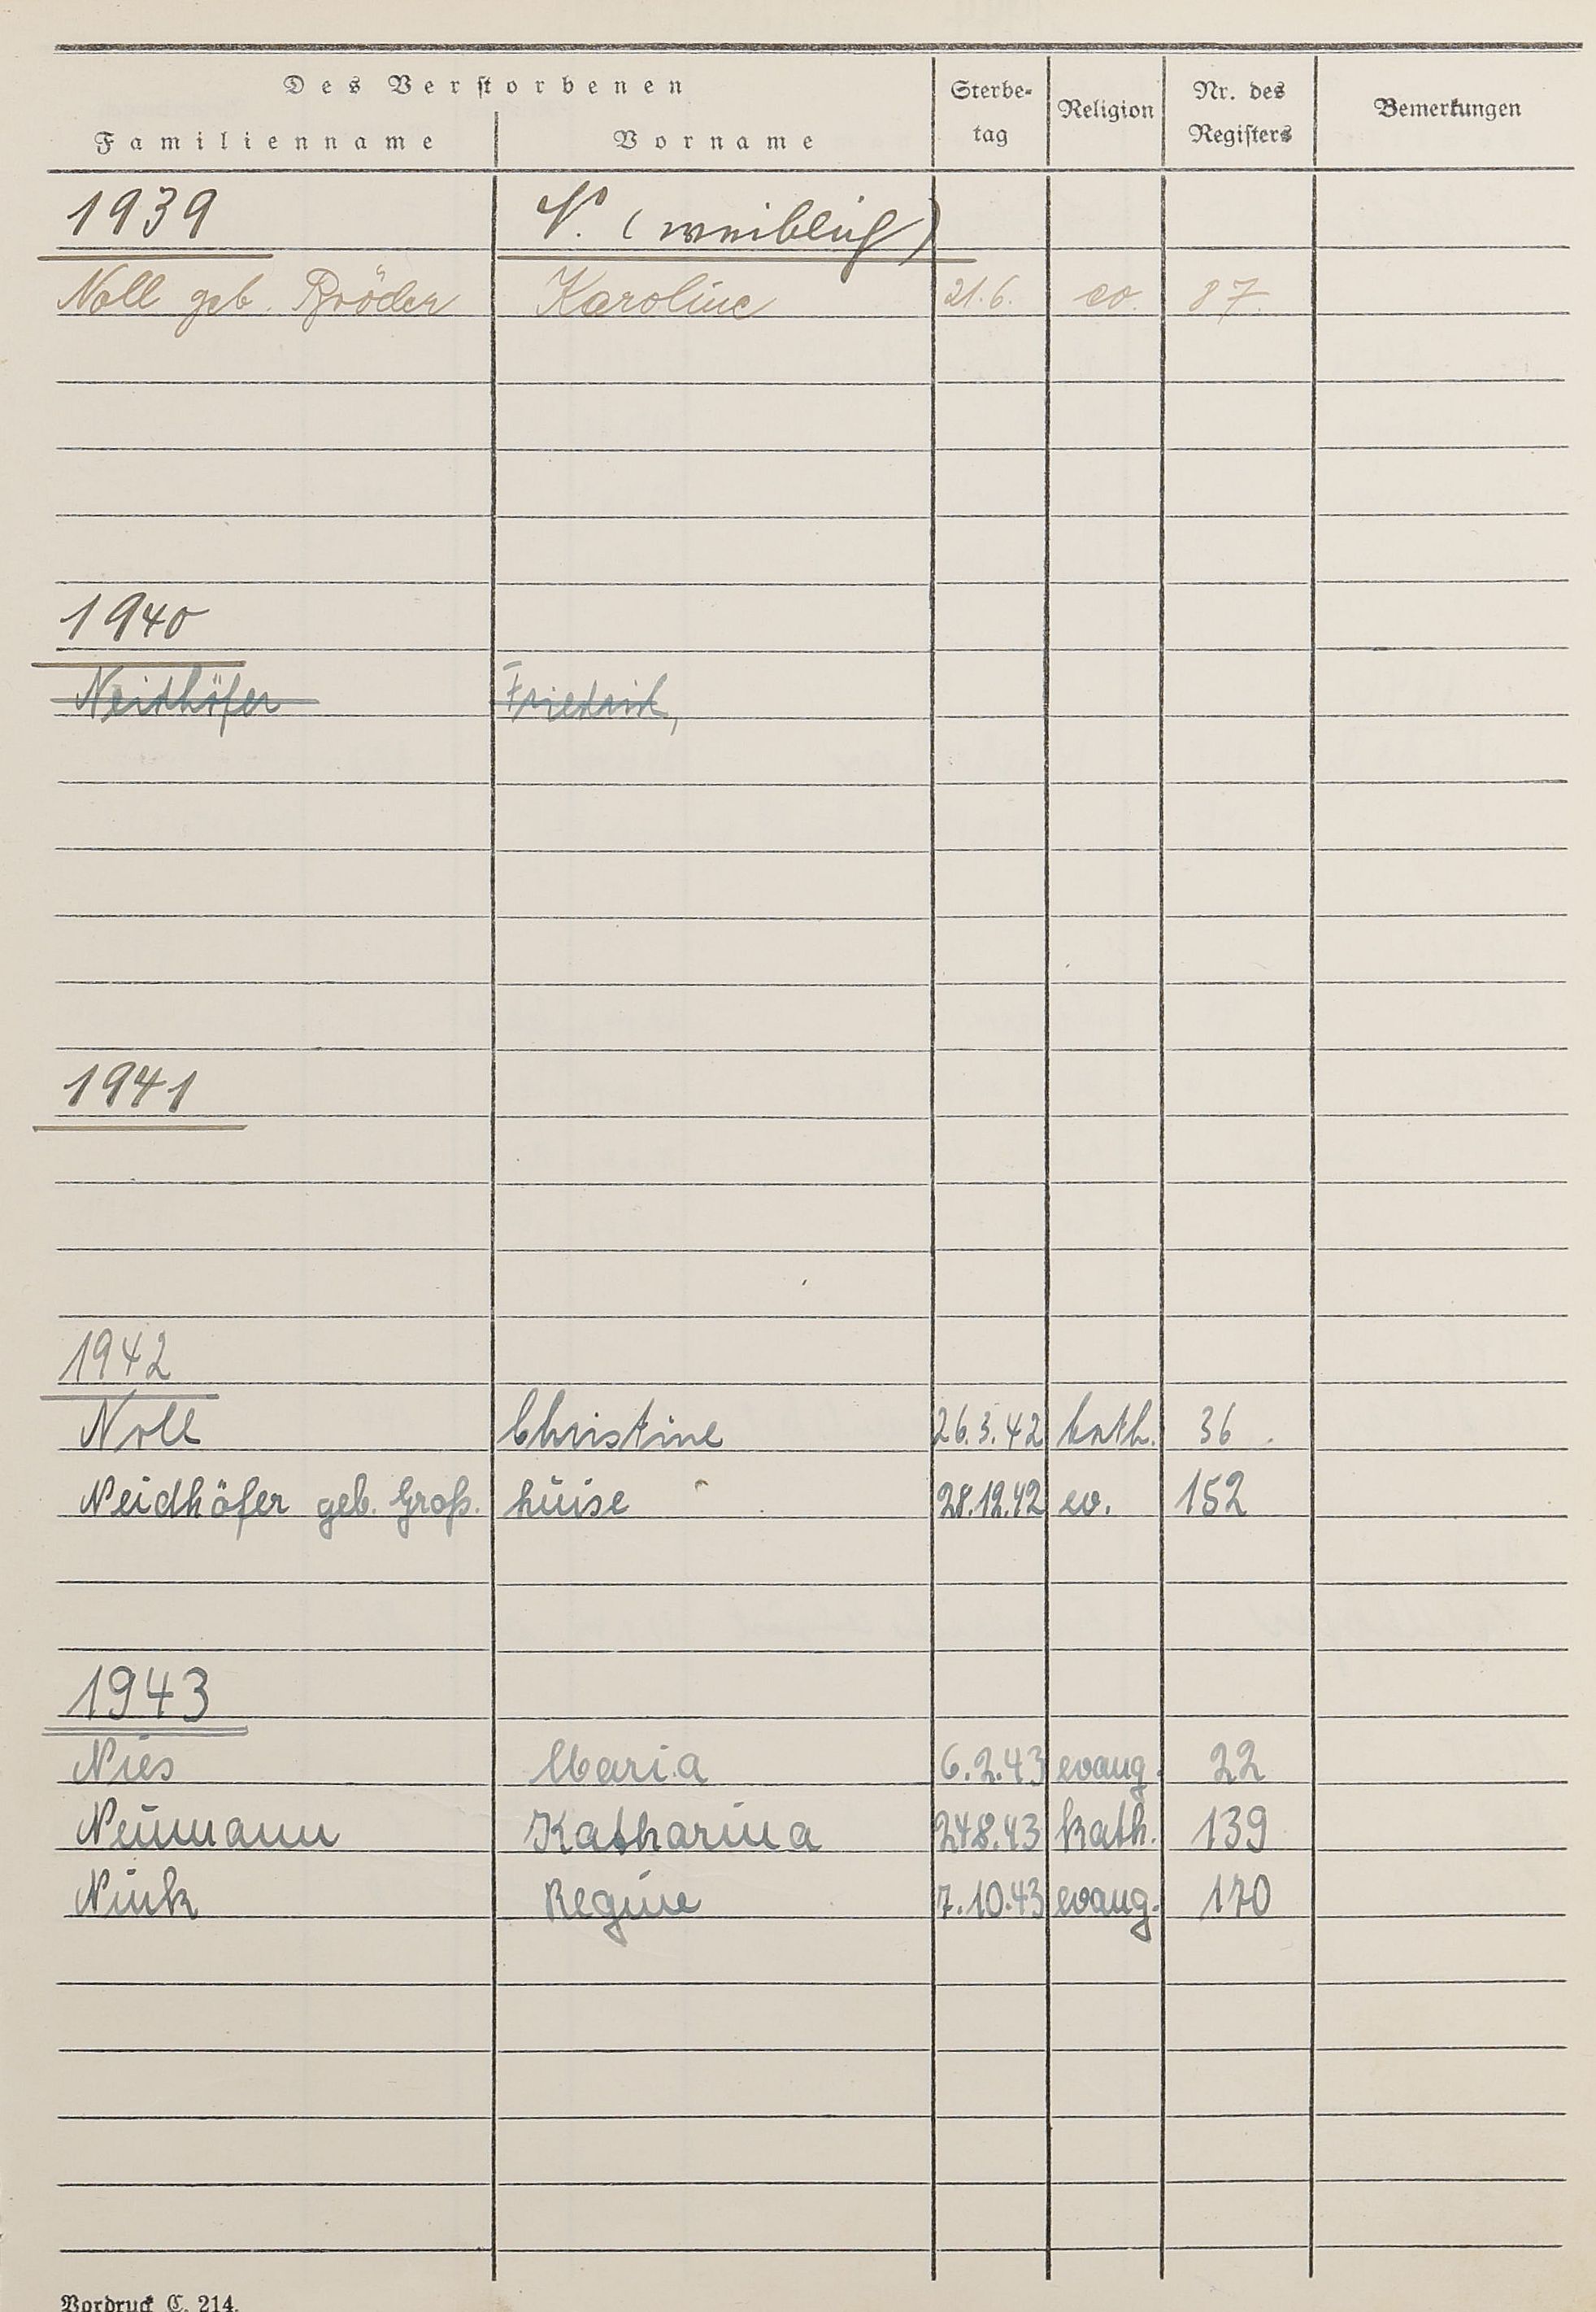 Des Verstorbenen
Familienname Vorname Sterbe-tag Religion Nr. des Registers Bemerkungen
1939 N. (weiblich)
Noll geb. Bröder Karoline 21.6. ev. 87.
1940
Neidhöfer Friedrich,
1941
1942
Noll Christine 26.3.42 kath. 36.
Neidhöfer geb. Groß. Luise 28.12.42 ev. 152
1943
Nies Maria 6.2.43 evang. 22
Neumann Katharina 24.8.43 kath. 139
Nink Regine 7.10.43 evang. 170
Vordruck C. 214.